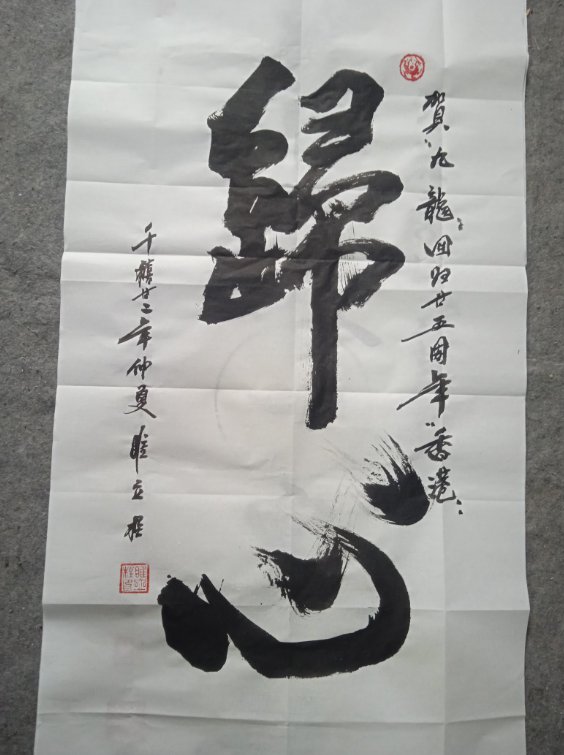 賀九龍回归廿五周年香港
歸心
千禧廿二年仲夏 睢立